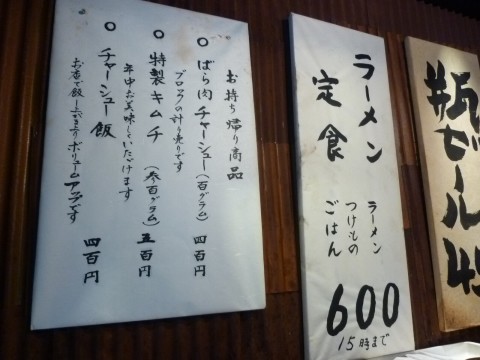 お持ち帰り商品
○ ばら肉チャーシュー(百グラム) 四百円
ブロックの計り売りです
○ 特製キムチ (参百グラム) 五百円
年中お美味していただけます
○ チャーシュー飯 四百円
お店で飯し上がるよりボリュームアップです
ラーメン
定食
ラーメン
つけもの
ごはん
600
15時まで
瓶ビール 45